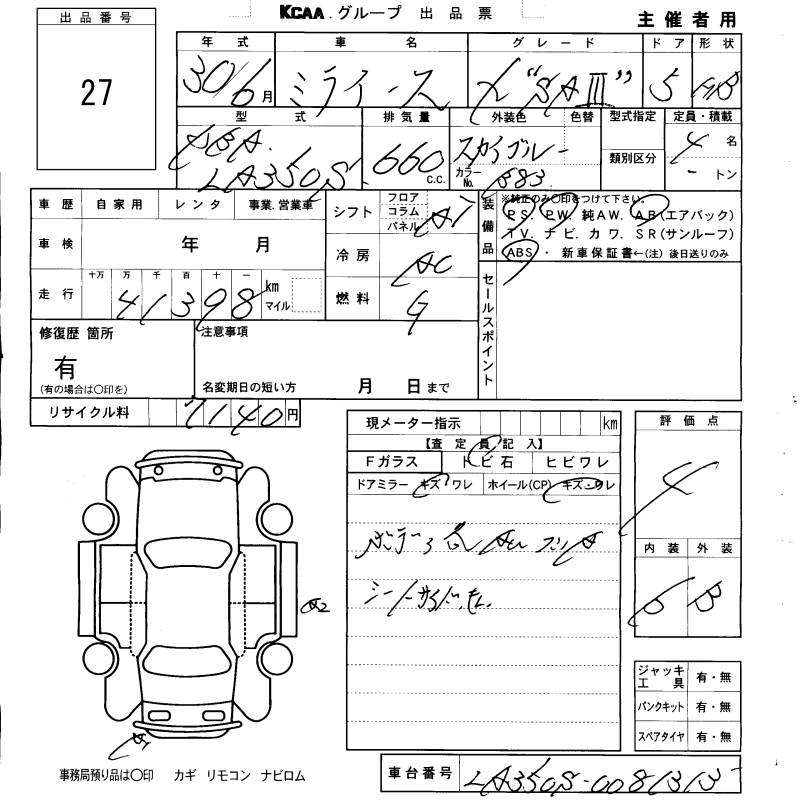 KCAA グループ 出品票
主催者用
出品番号
27
年式 車名 グレード ドア 形状
30/6月 ミライース X"SAⅢ" 5 HB
型式 排気量 外装色 色替 型式指定 定員・積載
DBA. LA350S 660 C.C. スカイブルー 類別区分 4名
カラーNo. B83 ートン
車歴 自家用 レンタ 事業.営業車
シフト フロア コラム パネル AT
装備品 ※純正のみ〇印をつけて下さい。
PS. PW. 純AW. AB(エアバック)
TV. ナビ. カワ. SR(サンルーフ)
ABS・ 新車保証書←(注) 後日送りのみ
車検 年 月
冷房 AC
走行 十万 万 千 百 十 一
41398 km マイル
燃料 G
セールスポイント
修復歴 箇所
有
(有の場合は〇印を)
注意事項
名変期日の短い方 月 日まで
リサイクル料 7140円
現メーター指示 km
【査定員記入】
Fガラス トビ石 ヒビワレ
ドアミラー キズ・ワレ ホイール(CP) キズ・ワレ
評価点
4
内装 外装
B B
A2
A1
ジャッキ工具 有・無
パンクキット 有・無
スペアタイヤ 有・無
事務局預り品は〇印 カギ リモコン ナビロム
車台番号 LA350S-0081313